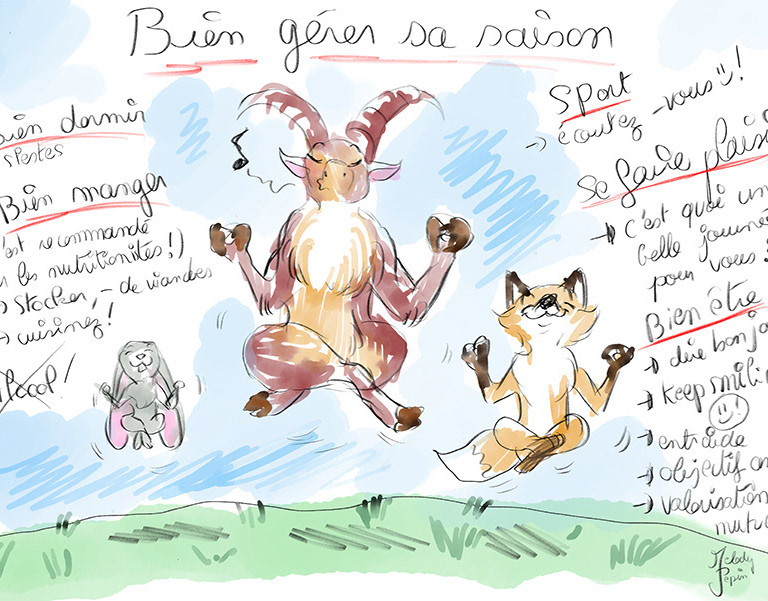 Bien gérer sa saison
Bien dormir
siestes
Bien manger
c'est recommandé
les nutritionnites!)
Stocker, - de viandes
cuisinez!
alcool!
Sport
écoutez-vous!
Se faire plaisir
→ c'est quoi une
belle journée
pour vous?
Bien être
→ dire bonjour
→ keep smiling
→ entraide
→ objectif
→ valorisation
mutu
Melody
Pépin